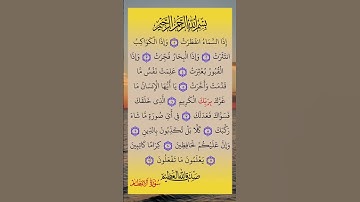 بِسْمِ اللَّهِ الرَّحْمَٰنِ الرَّحِيمِ
إِذَا السَّمَاءُ انْفَطَرَتْ ۝ وَإِذَا الْكَوَاكِبُ
انْتَثَرَتْ ۝ وَإِذَا الْبِحَارُ فُجِّرَتْ ۝ وَإِذَا
الْقُبُورُ بُعْثِرَتْ ۝ عَلِمَتْ نَفْسٌ مَّا
قَدَّمَتْ وَأَخَّرَتْ ۝ يَا أَيُّهَا الْإِنْسَانُ مَا
غَرَّكَ بِرَبِّكَ الْكَرِيمِ ۝ الَّذِي خَلَقَكَ
فَسَوَّاكَ فَعَدَلَكَ ۝ فِي أَيِّ صُورَةٍ مَّا شَاءَ
رَكَّبَكَ ۝ كَلَّا بَلْ تُكَذِّبُونَ بِالدِّينِ ۝
وَإِنَّ عَلَيْكُمْ لَحَافِظِينَ ۝ كِرَامًا كَاتِبِينَ
۝ يَعْلَمُونَ مَا تَفْعَلُونَ ۝
صَدَقَ اللَّهُ الْعَظِيمُ
سُورَةُ الانفطار